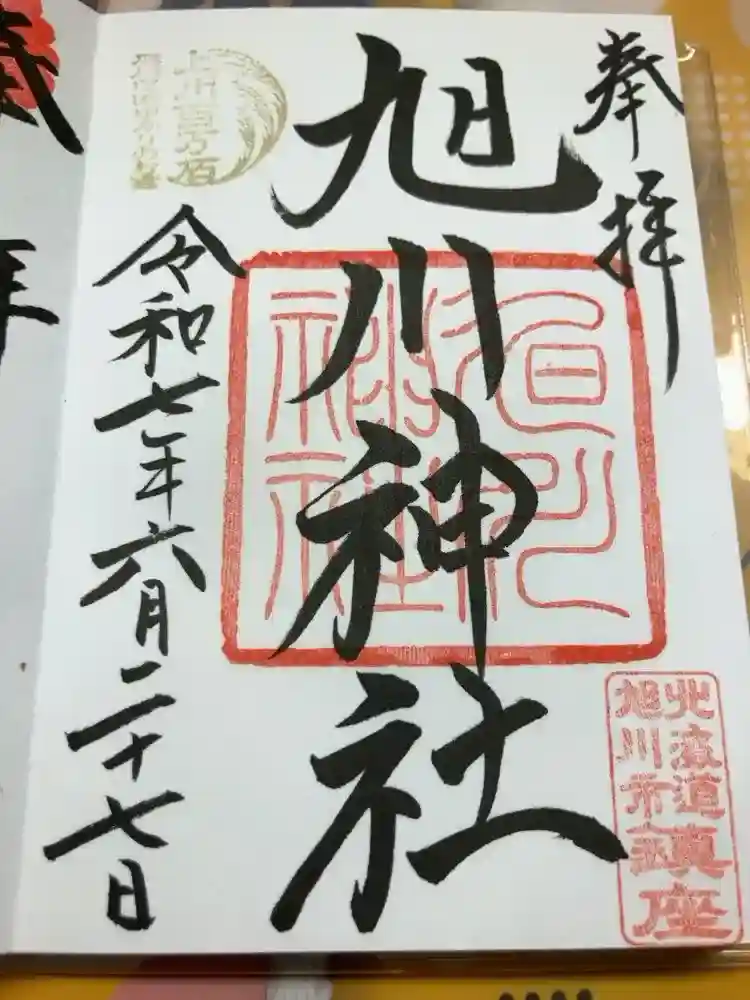 奉拝
旭川神社
旭川
神社
北海道
旭川市
鎮座
上川百万石
令和七年六月二十七日
拝